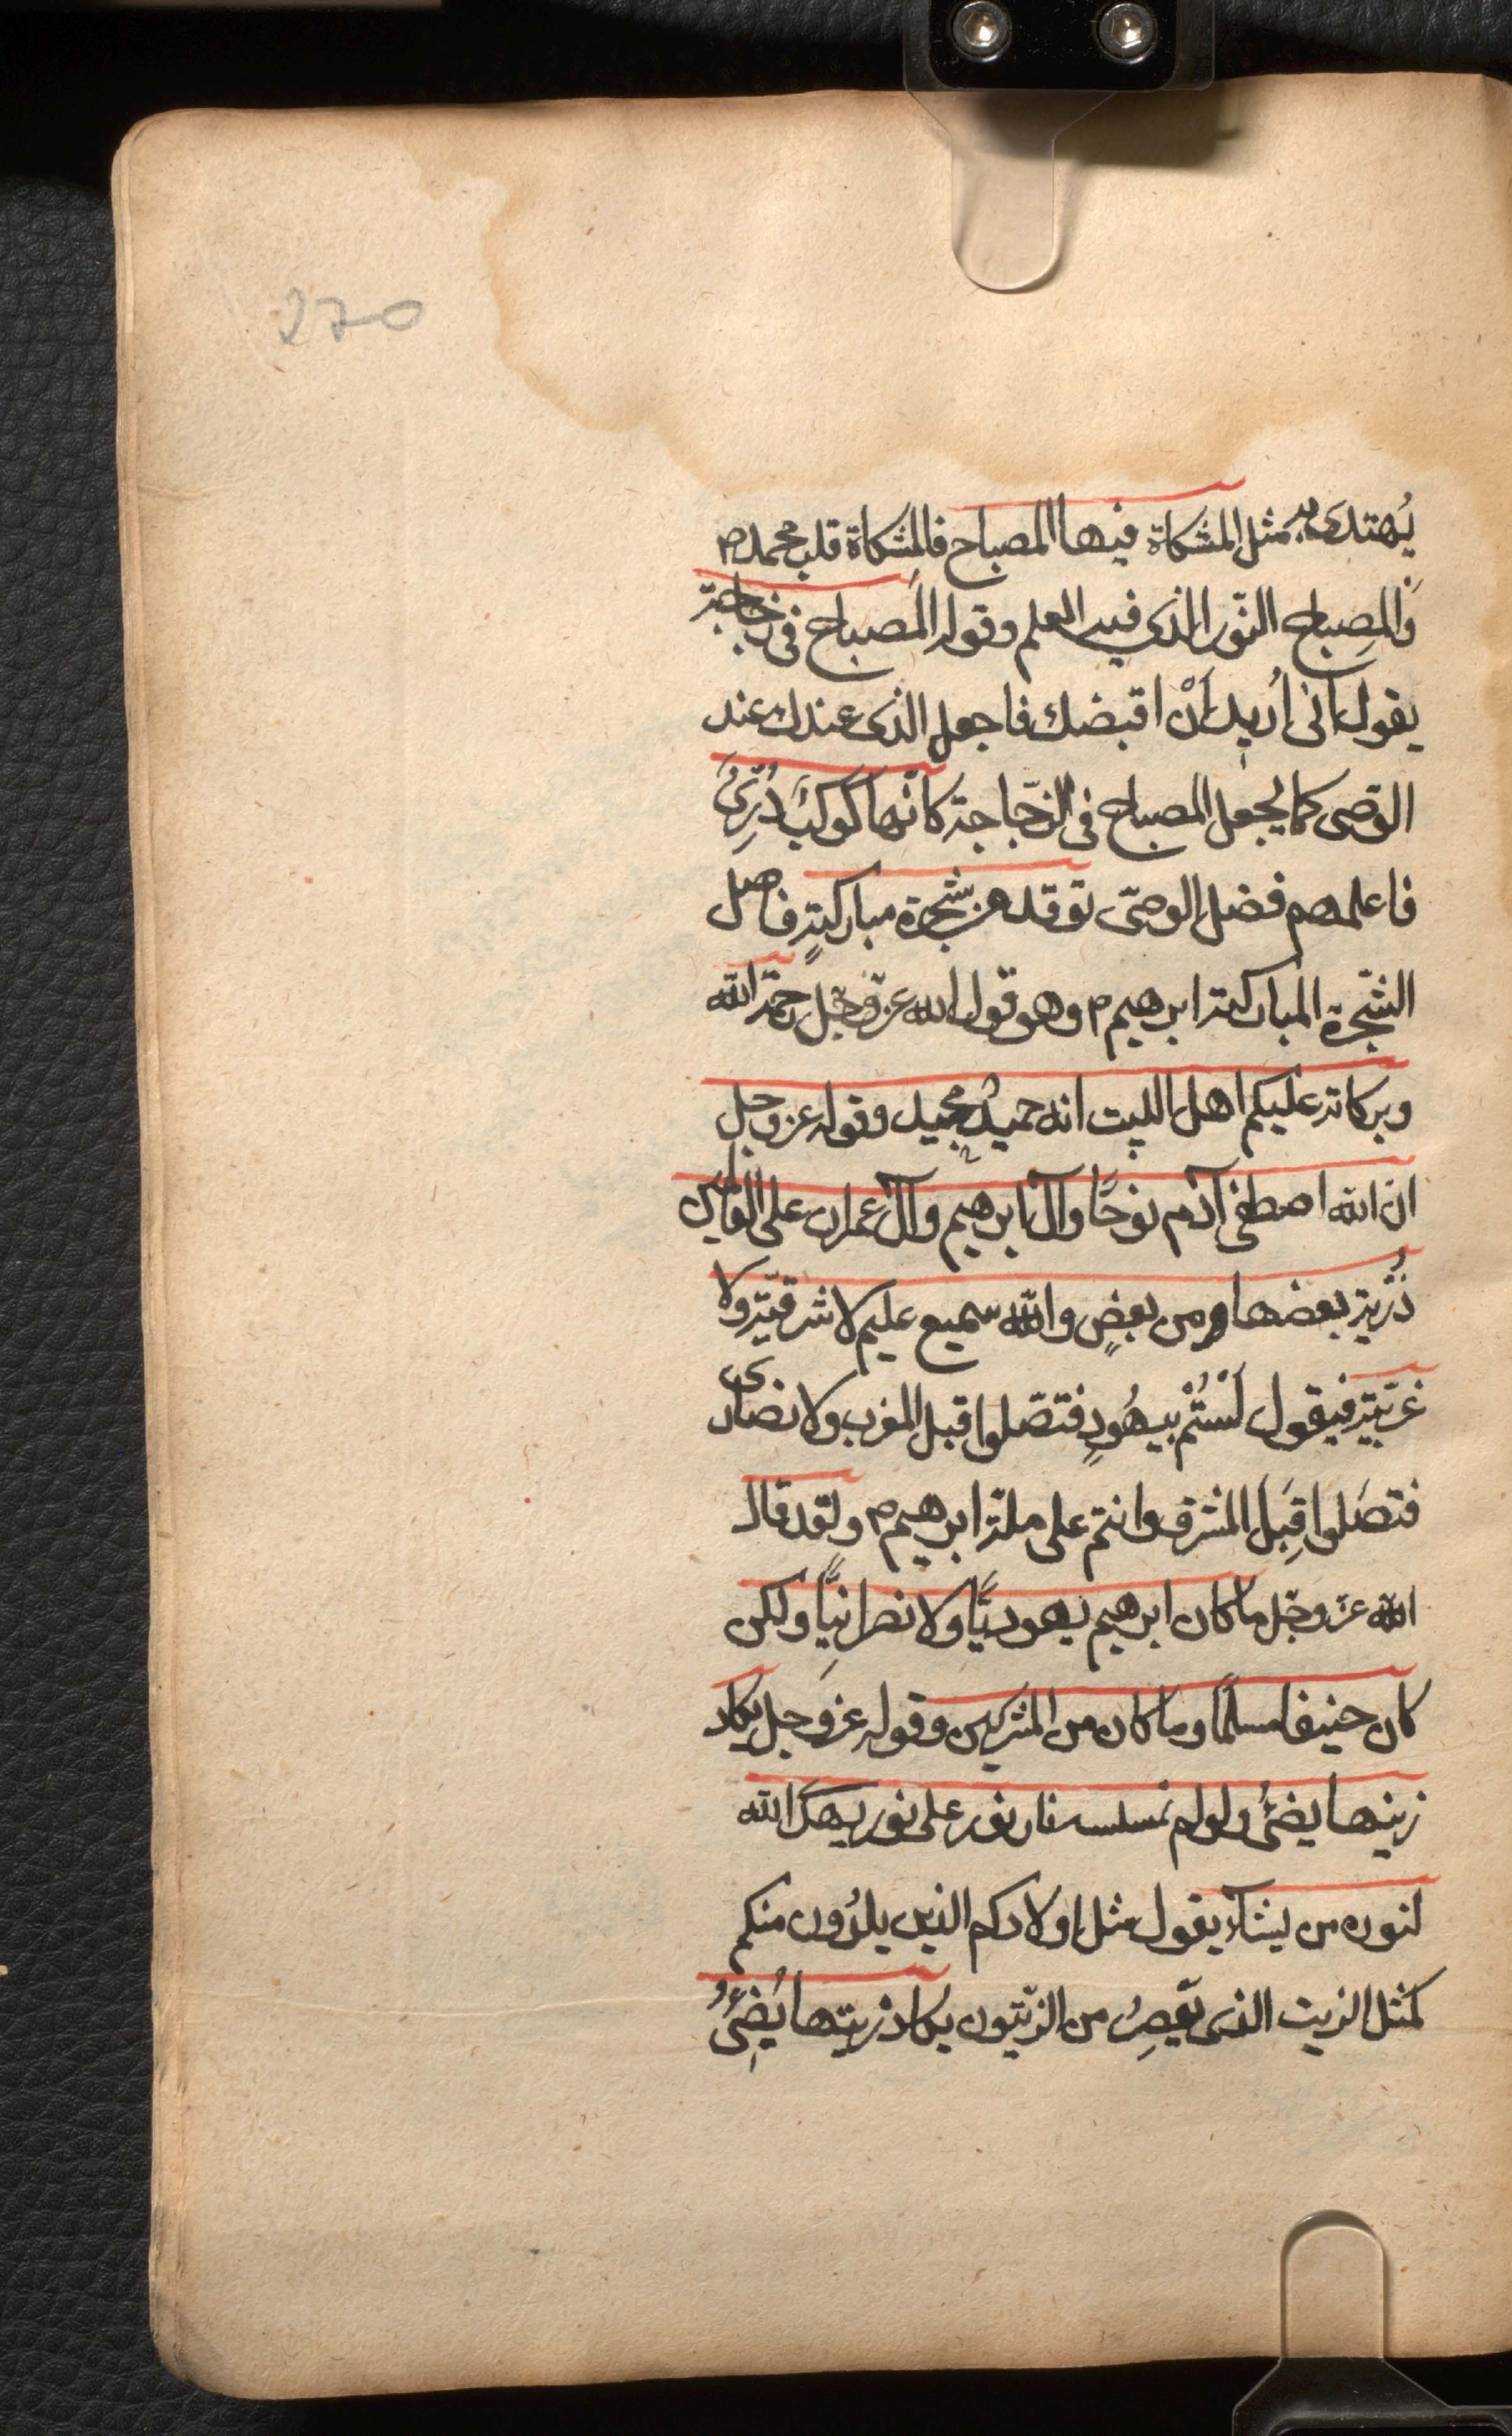 270
يُهتدى به مثل المشكاة فيها المصباح فالمشكاة قلب محمد م
وَالمِصباح النّور الذى فيه العلم وقوله المصباح فى زجاجة
يقول انى اُريد اَنْ اقبضك فاجعل الذى عندك عند
الوصى كما يجعل المصباح فى الزّجاجة كانّها كوكبٌ دُرِّىٌّ
فاعلمهم فضل الوصىّ توقد من شجرة مباركةٍ فاصل
الشّجرة المباركة ابرهيم م وهو قول الله عزّ وجلّ رحمة الله
وبركاته عليكم اهل البيت انه حميدٌ مجيد وقوله عز وجل
ان الله اصطفى آدم نوحًا وآل ابرهيم وآل عمران على العالمين
ذُرّية بعضها من بعضٍ والله سميع عليم لا شرقيّة ولا
غربيّة فيقول لَسْتُمْ بيهُودٍ فتصّلوا قبل المغرب ولا نصارى
فتصَلوا قِبَل المشرق وانتم على ملة ابرهيم م ولقد قال
الله عزّ وجلّ ما كان ابرهيم يهوديًّا ولا نصرانيًّا ولكن
كان حنيفا مسلمًا وما كان من المشركين وقوله عز وجل يكاد
زيتها يضئُ ولو لم تمسسه نار نور على نور يهدى الله
لنوره من يشآء يقول مثل اولادكم الذين يلدُون منكم
كمثل الزيت الذى يعصِرُ من الزّيتون يكاد زيتها يُضِئُ